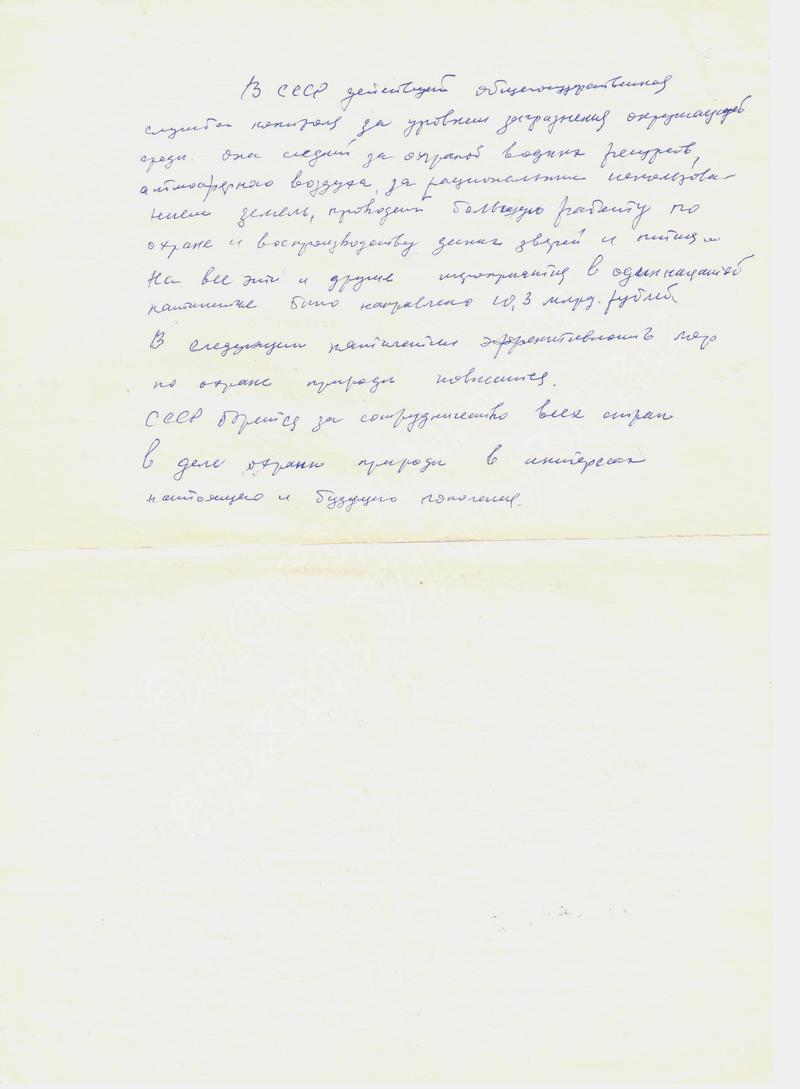 В СССР действует общегосударственная
служба контроля за уровнем загрязнения окружающей
среды. Она следит за охраной водных ресурсов,
атмосферного воздуха, за рациональным использова-
нием земель, проводит большую работу по
охране и воспроизводству диких зверей и птиц.
На все эти и другие мероприятия в одиннадцатой
пятилетке было направлено 10,3 млрд. рублей.
В следующем пятилетии эффективность мер
по охране природы повысится.
СССР борется за сотрудничество всех стран
в деле охраны природы в интересах
настоящего и будущего поколения.